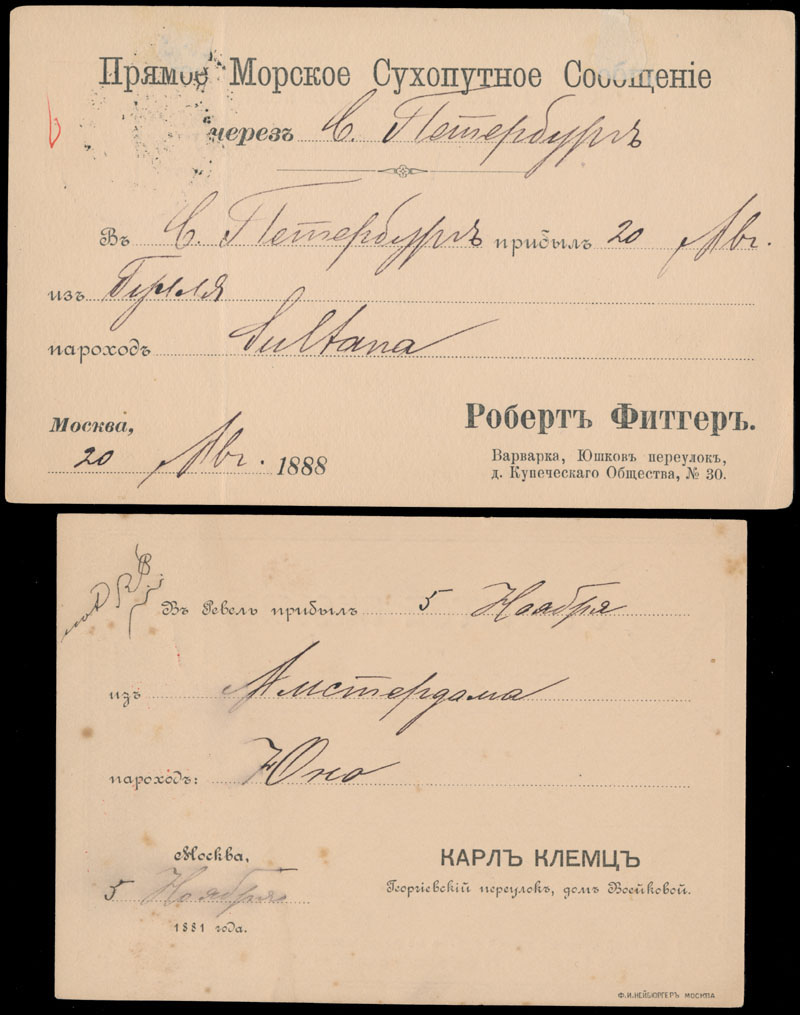 Прямое Морское Сухопутное Сообщеніе
черезъ С. Петербургъ
Въ С. Петербургъ прибылъ 20 Авг.
изъ Гулля
пароходъ Sultana
Москва,
20 Авг. 1888
Робертъ Фитгеръ.
Варварка, Юшковъ переулокъ,
д. Купеческаго Общества, № 30.
Въ Ревель прибылъ 5 Ноября
изъ Амстердама
пароходъ: Юно
Москва,
5 Ноября
1881 года.
КАРЛЪ КЛЕМЦЪ
Георгіевскій переулокъ, домъ Воейковой.
Ф. И. НЕЙБЮРГЕРЪ МОСКВА